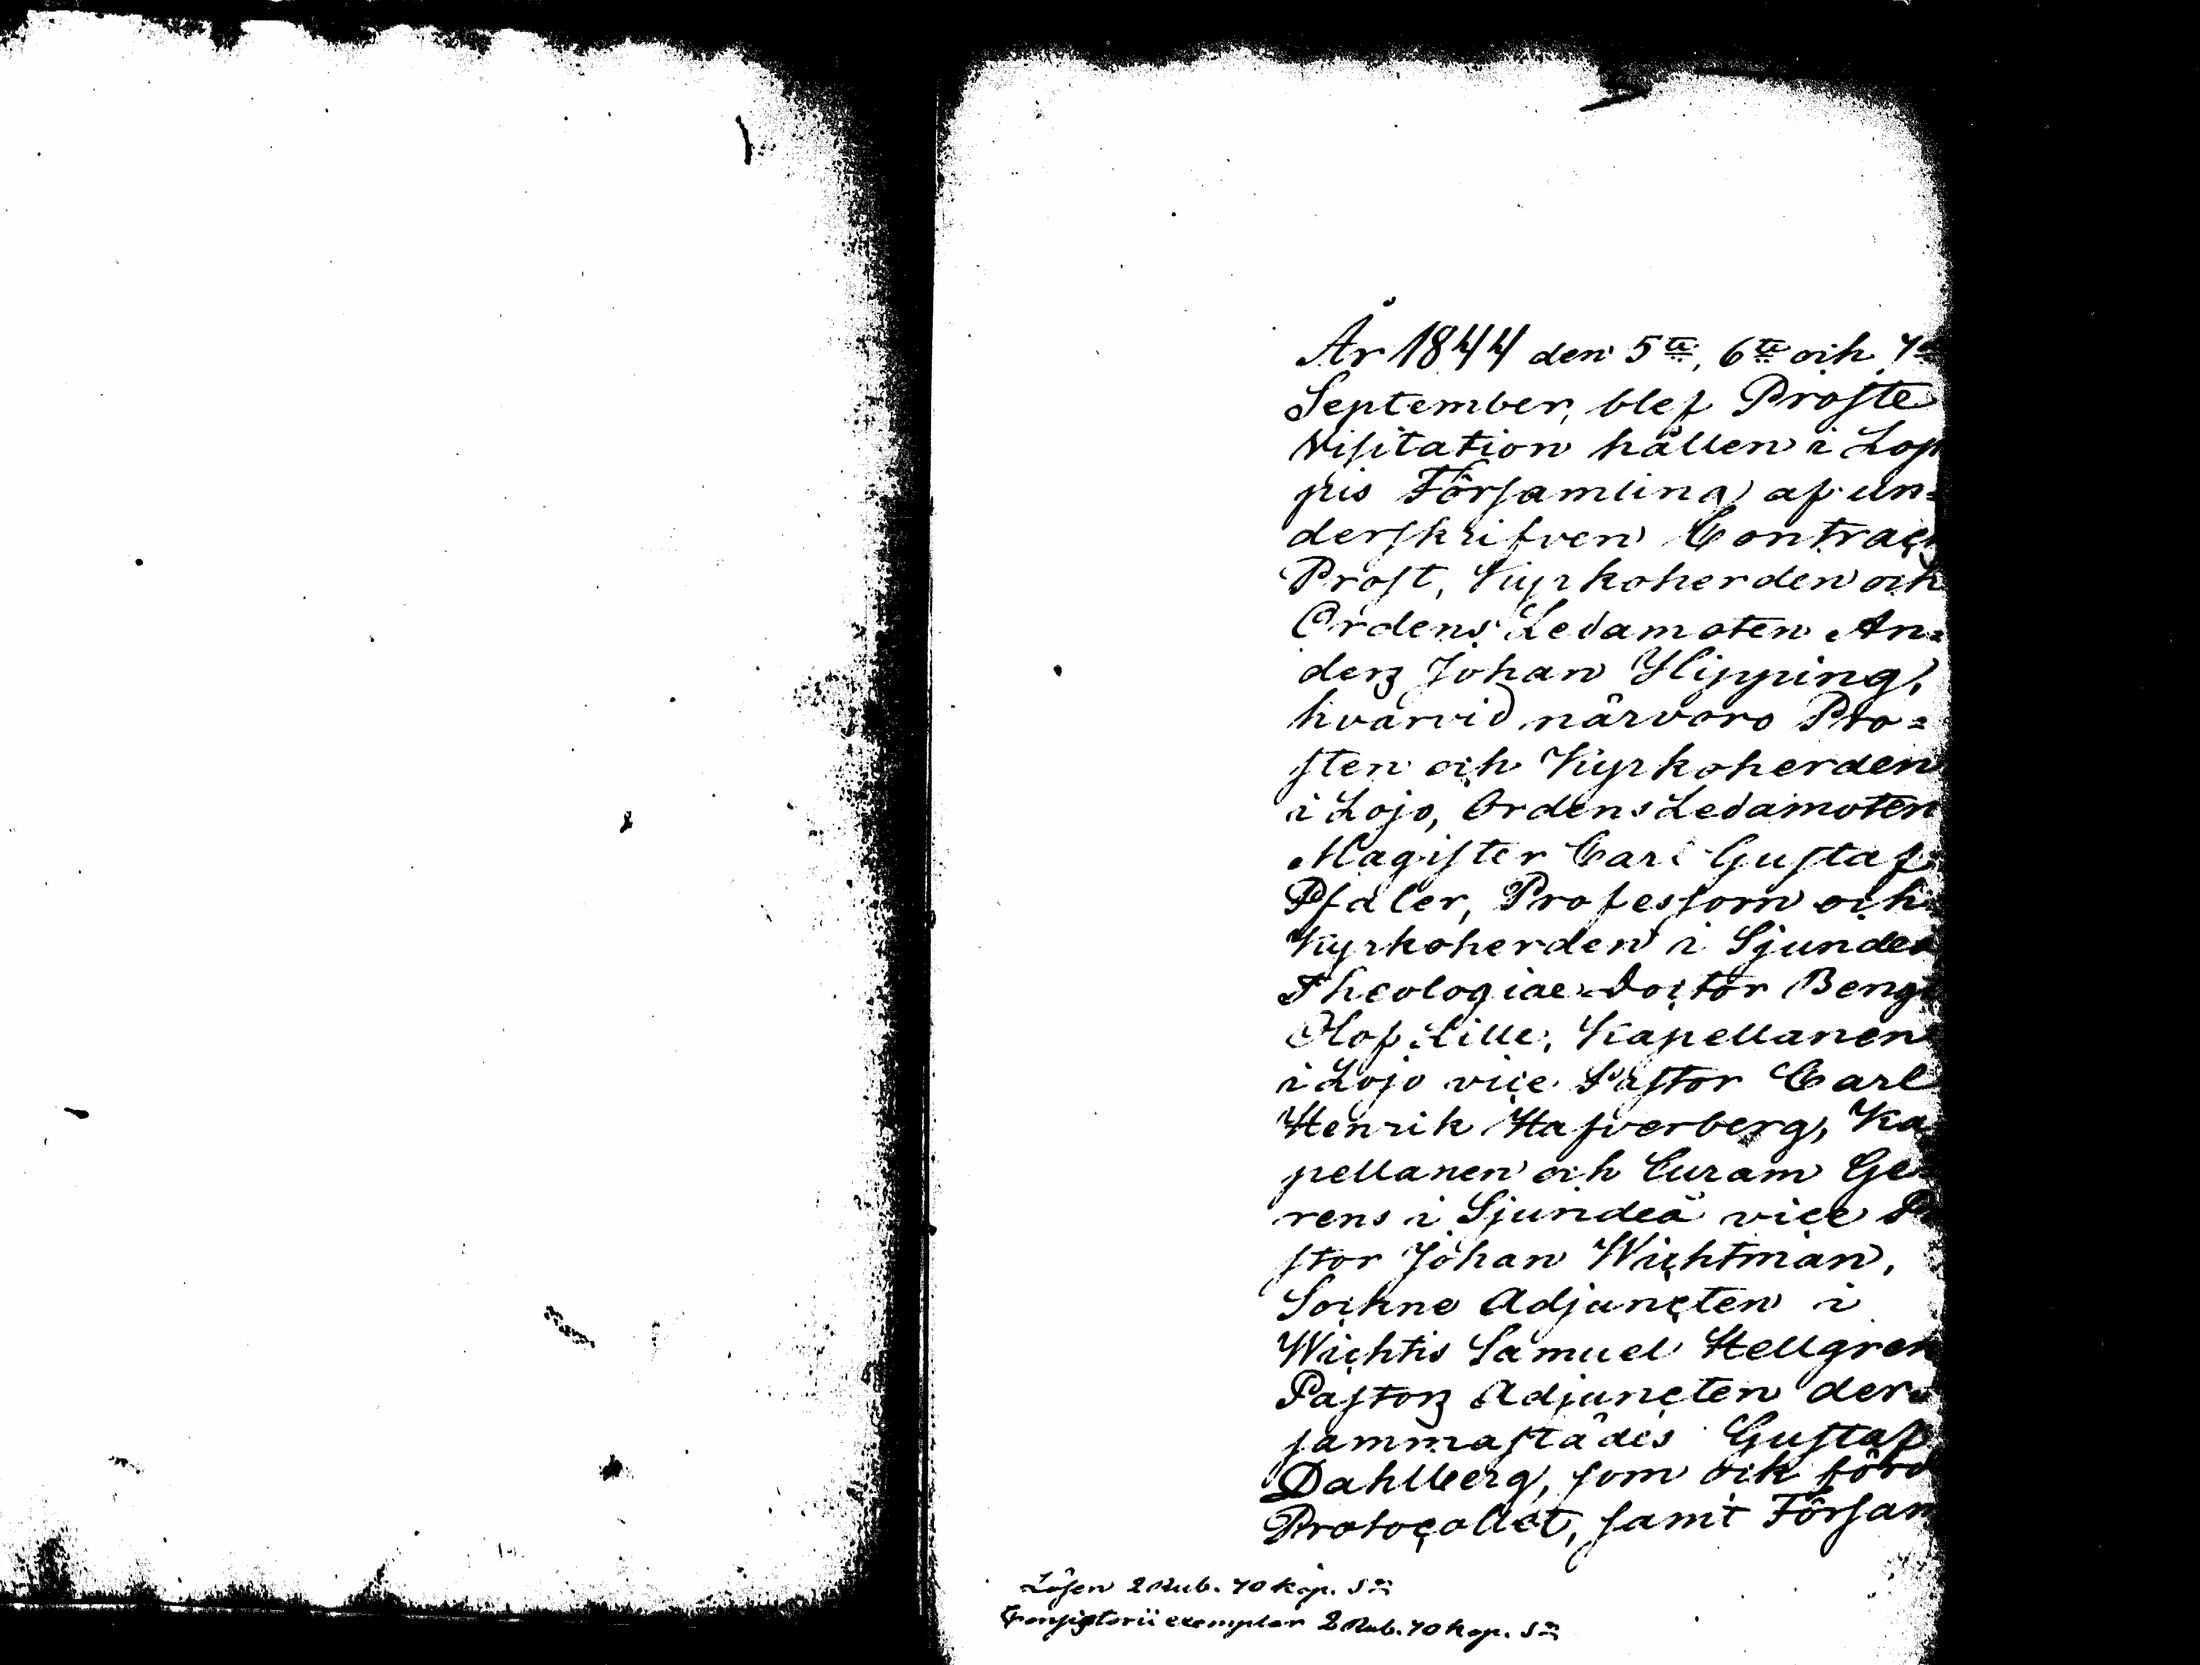 År 1844 den 5te, 6te och 7de
September, blef Proste
Visitation hållen i Lop
pis Församling af un=
derskrifven Contract
Prost, Kyrkoherden och
Ordens Ledamoten An=
ders Johan Hipping,
hvarvid närvoro Pro=
sten och Kyrkoherden
i Lojo, Ordens Ledamoten
Magister Carl Gustaf
Pfaler, Professorn och
Kyrkoherden i Sjundeå
Theologiae Doctor Bengt
Olof Lille, Kapellanen
i Lojo vice Pastor Carl
Henrik Hafverberg, Ka
pellanen och Curam Ge=
rens i Sjundeå vice Pa
stor Johan Wichtman,
Sockne Adjuncten i
Wichtis Samuel Hellgren
Pastors Adjuncten der=
sammastädes Gustaf
Dahlberg, som ock förd
Protocollet, samt Försam
Lösen 2 Rub. 70 kop. Sr
Consistorii exemplar 2 Rub. 70 kop. Sr